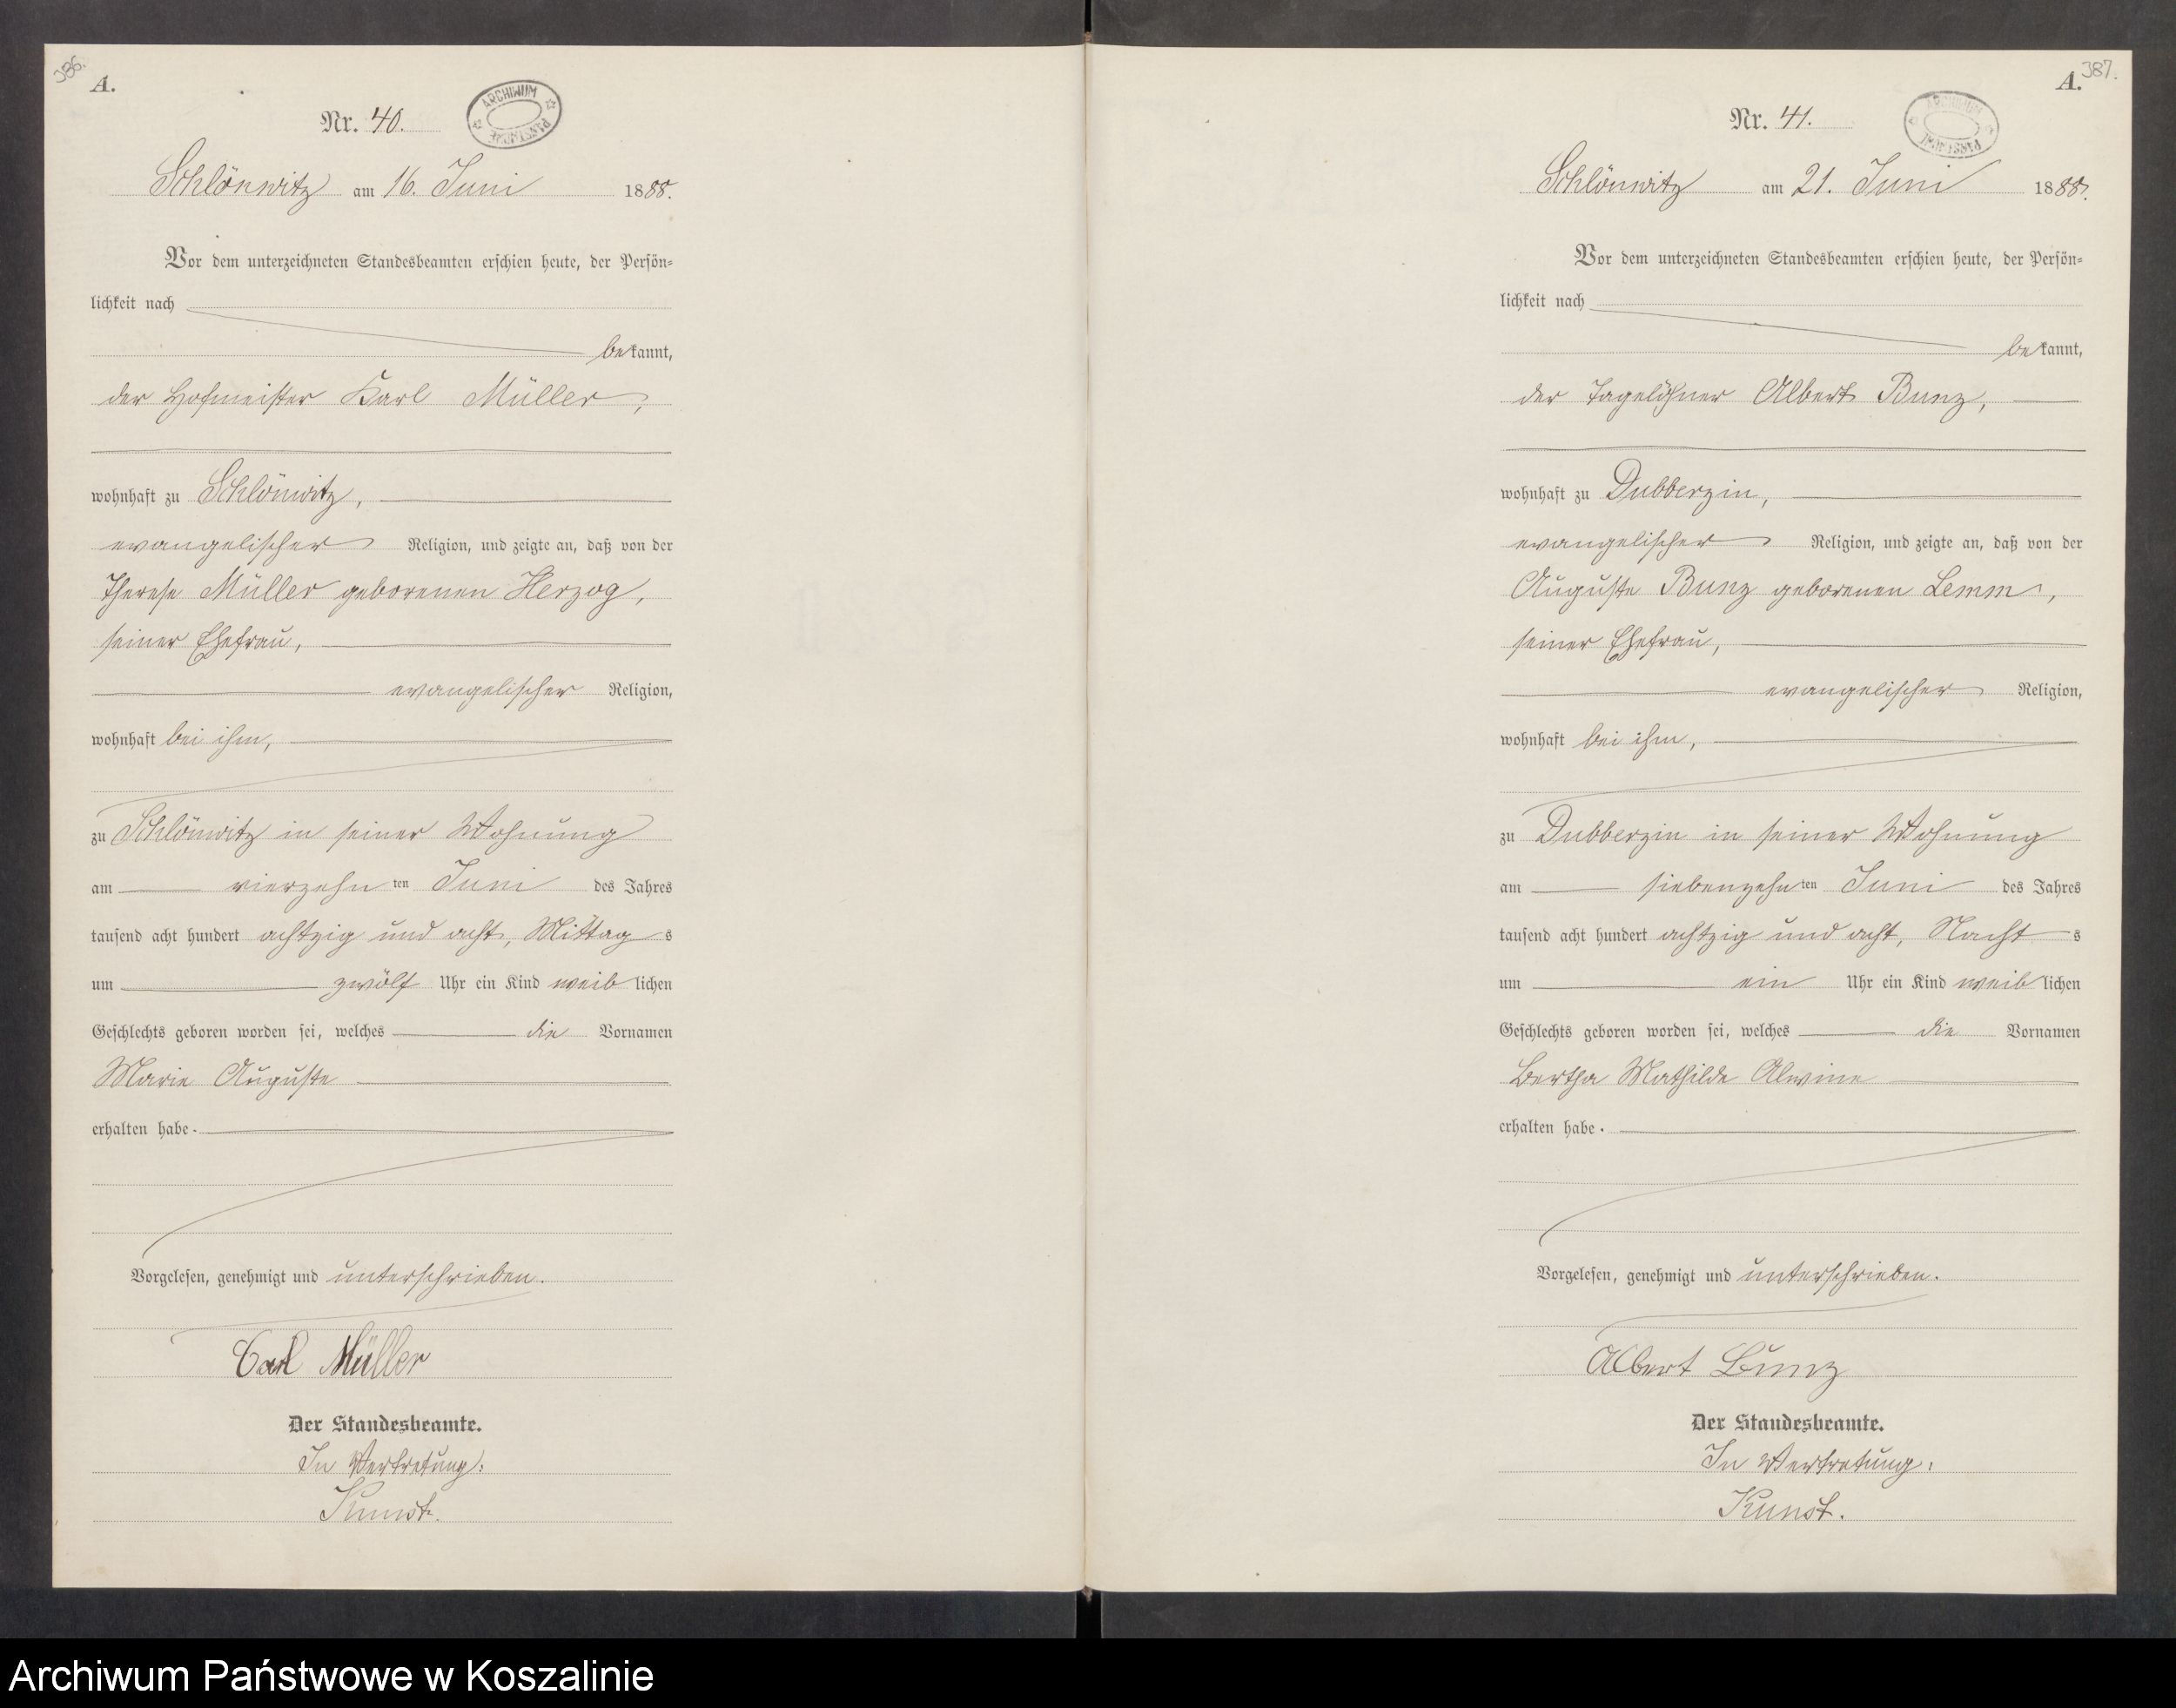 386.
A.
Nr. 40.
ARCHIWUM PAŃSTWOWE
Schlönwitz am 16. Juni 1888.
Vor dem unterzeichneten Standesbeamten erschien heute, der Persön=
lichkeit nach
bekannt,
der Hofmeister Karl Müller,
wohnhaft zu Schlönwitz,
evangelischer Religion, und zeigte an, daß von der
Therese Müller geborenen Herzog,
seiner Ehefrau,
evangelischer Religion,
wohnhaft bei ihm,
zu Schlönwitz in seiner Wohnung
am vierzehnten Juni des Jahres
tausend acht hundert achtzig und acht, Mittags
um zwölf Uhr ein Kind weiblichen
Geschlechts geboren worden sei, welches die Vornamen
Marie Auguste
erhalten habe.
Vorgelesen, genehmigt und unterschrieben.
Carl Müller
Der Standesbeamte.
In Vertretung:
Kunst.
387.
A.
Nr. 41.
ARCHIWUM PAŃSTWOWE
Schlönwitz am 21. Juni 1888.
Vor dem unterzeichneten Standesbeamten erschien heute, der Persön=
lichkeit nach
bekannt,
der Tagelöhner Albert Bunz,
wohnhaft zu Dubberzin,
evangelischer Religion, und zeigte an, daß von der
Auguste Bunz geborenen Lemm,
seiner Ehefrau,
evangelischer Religion,
wohnhaft bei ihm,
zu Dubberzin in seiner Wohnung
am siebenzehnten Juni des Jahres
tausend acht hundert achtzig und acht, Nachts
um ein Uhr ein Kind weiblichen
Geschlechts geboren worden sei, welches die Vornamen
Bertha Mathilde Alwine
erhalten habe.
Vorgelesen, genehmigt und unterschrieben.
Albert Bunz
Der Standesbeamte.
In Vertretung:
Kunst.
Archiwum Państwowe w Koszalinie